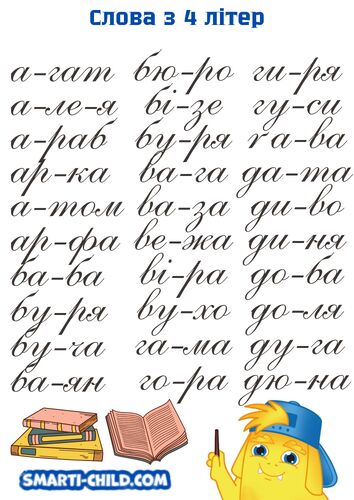 Слова з 4 літер
а-гат бю-ро ги-ря
а-ле-я бі-зе гу-си
а-раб бу-ря ґа-ва
ар-ка ва-га да-та
а-том ва-за ди-во
ар-фа ве-жа ди-ня
ба-ба ві-ра до-ба
бу-ря ву-хо до-ля
бу-ча га-ма ду-га
ба-ян го-ра дю-на
SMARTI-CHILD.COM